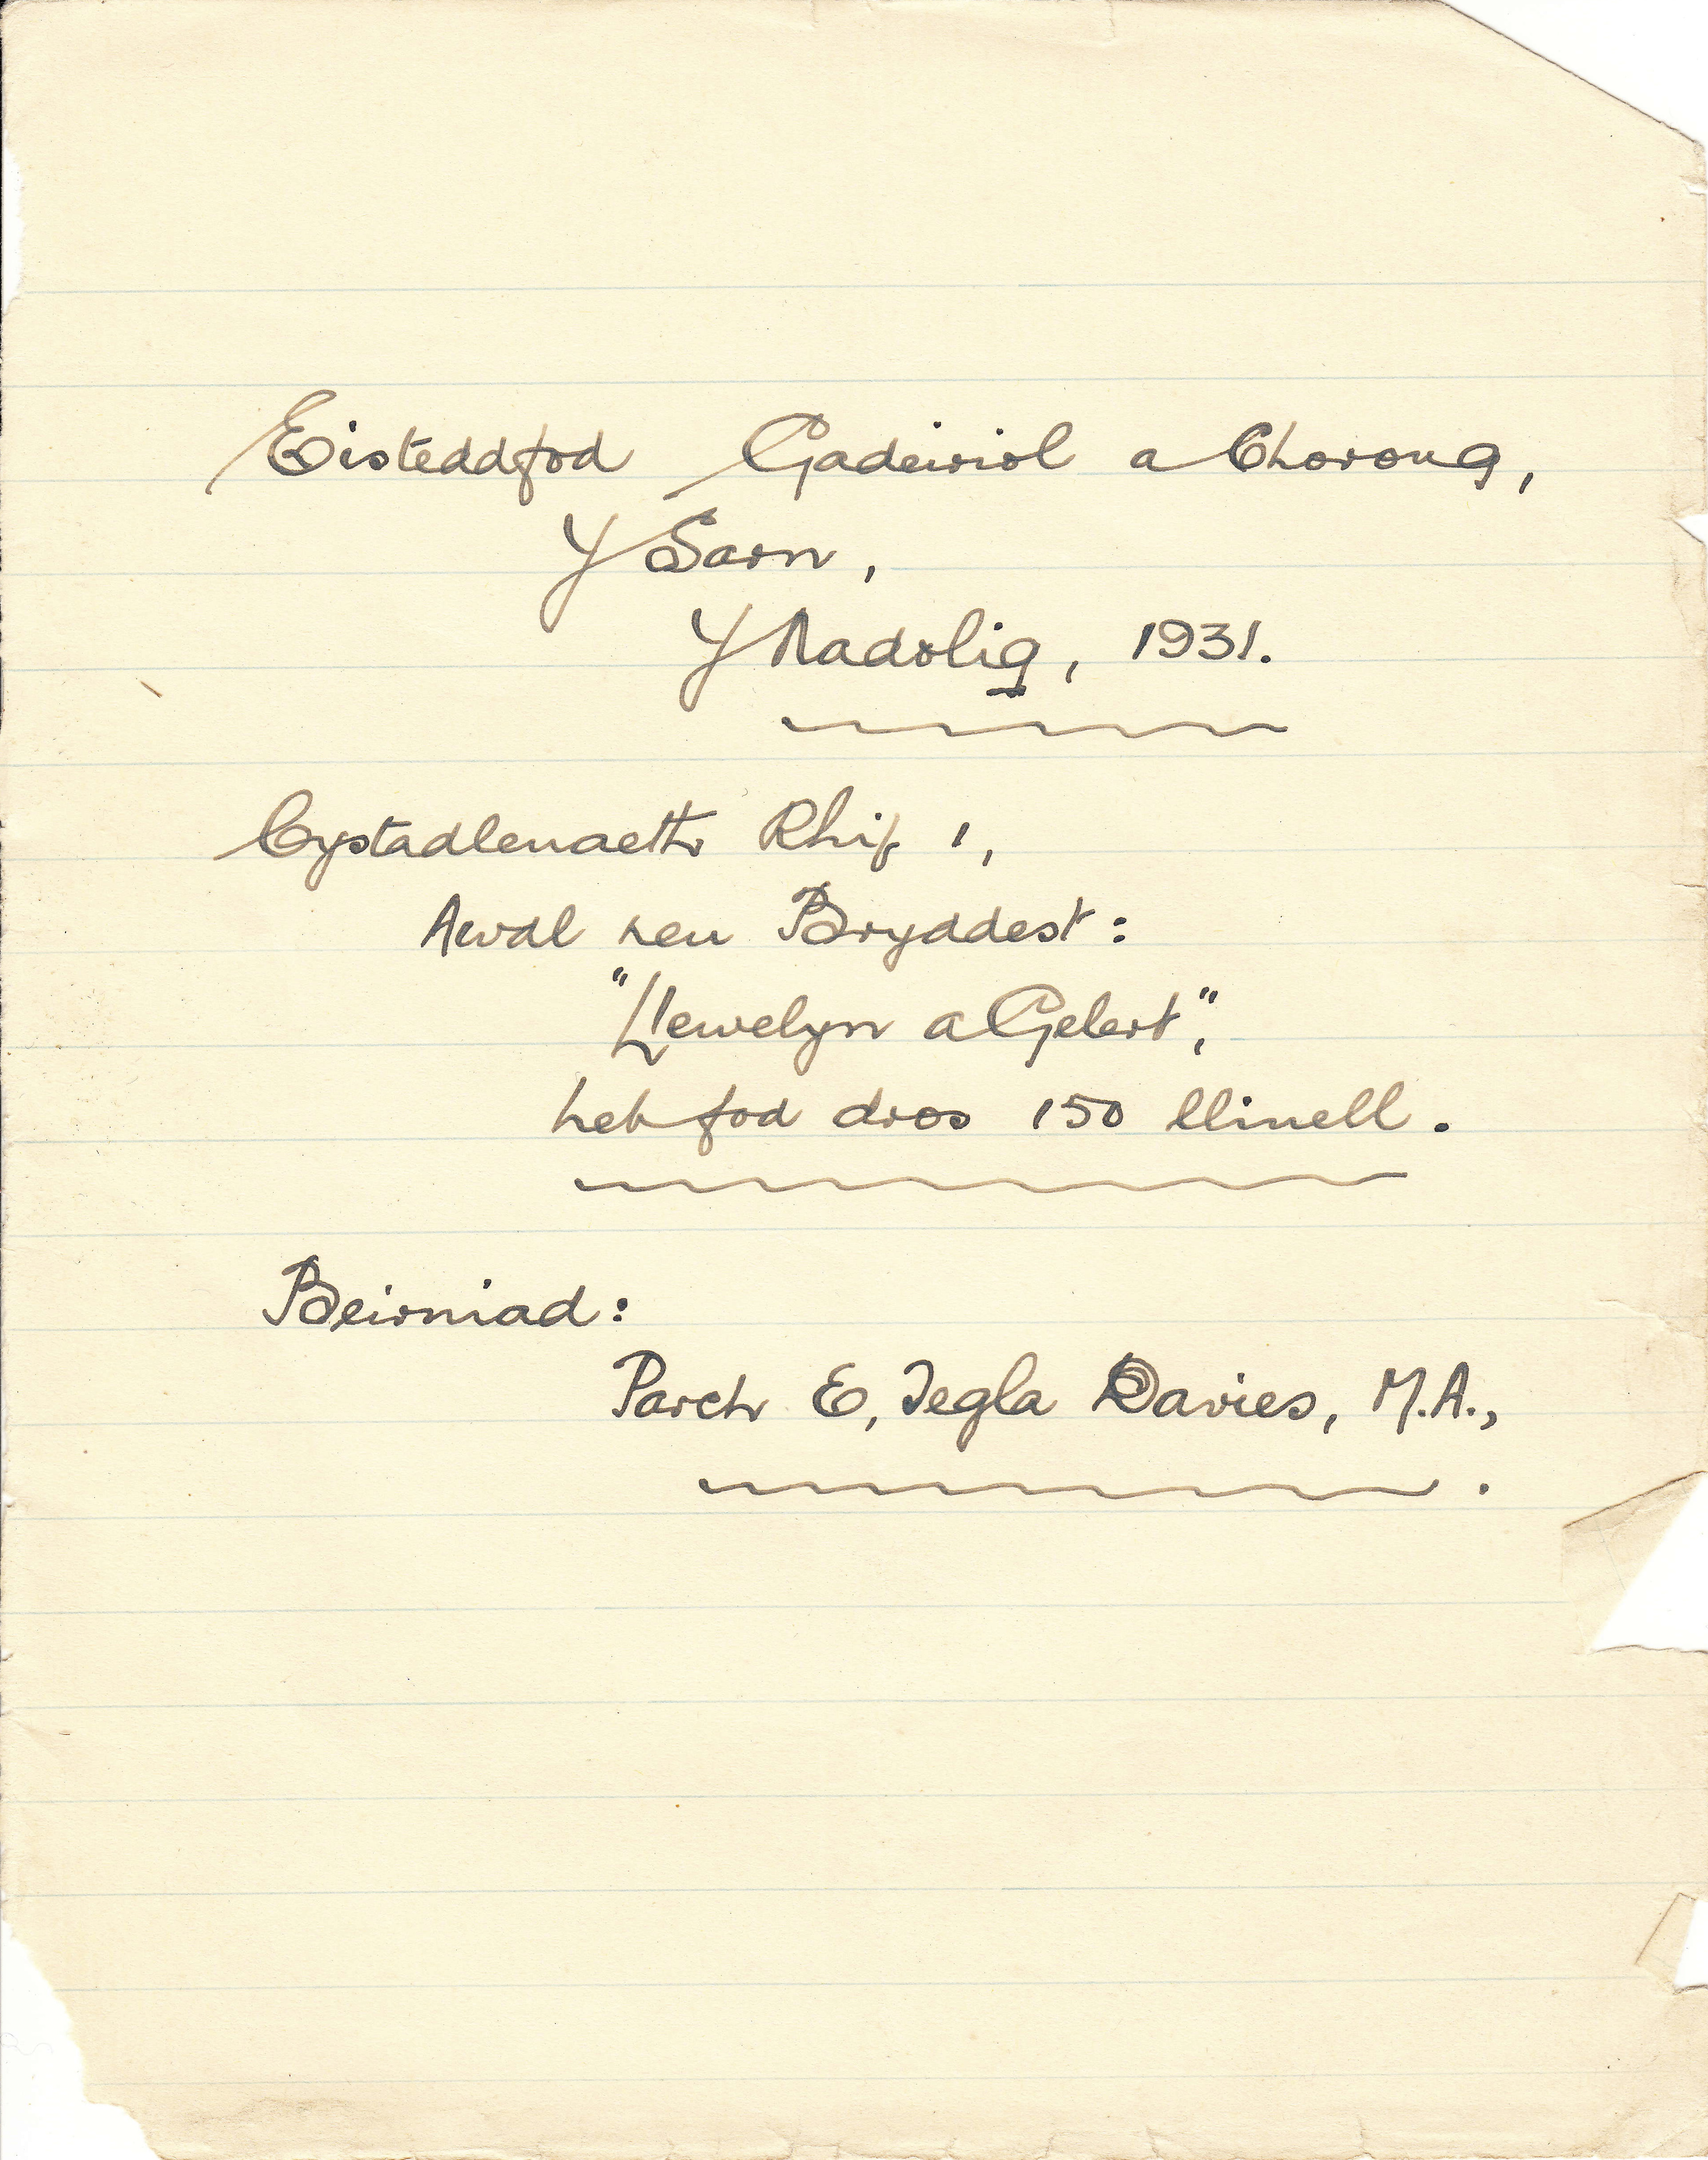 Eisteddfod Gadeiriol a Chorong,
Y Sarn,
Y Nadolig, 1931.
Cystadleuaeth Rhif 1,
Awdl neu Bryddest:
"Llewelyn a Gelert",
heb fod dros 150 llinell.
Beirniad:
Parch E, Tegla Davies, M.A.,